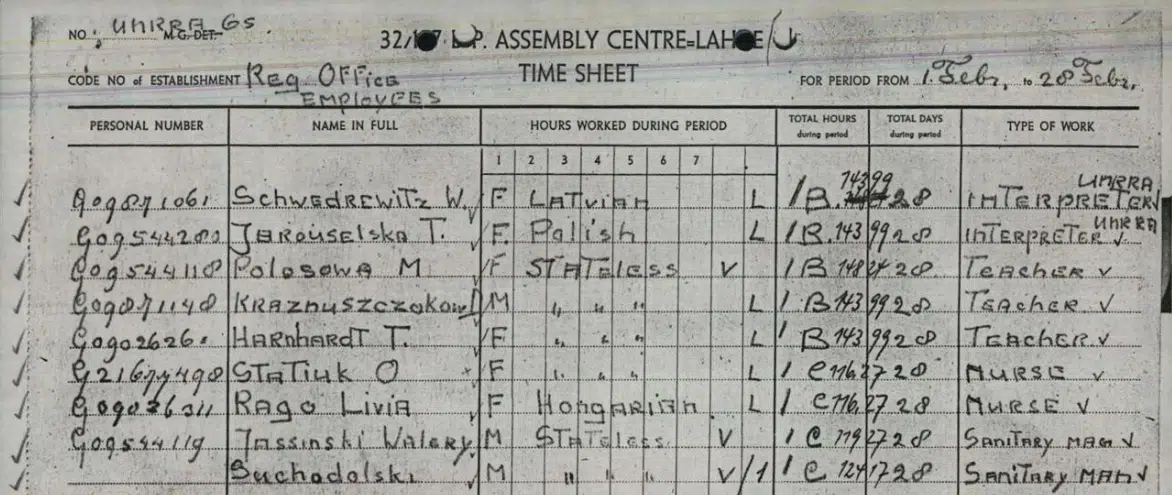 NO. UNRRA M.G. DET. G5
32/ D.P. ASSEMBLY CENTRE=LAHDE/
CODE NO of ESTABLISHMENT Reg Office TIME SHEET FOR PERIOD FROM 1. Febr. to 28 Febr.
EMPLOYEES
PERSONAL NUMBER NAME IN FULL HOURS WORKED DURING PERIOD TOTAL HOURS during period TOTAL DAYS during period TYPE OF WORK
1 2 3 4 5 6 7
G09871061 Schwedrewitz W. F LATVIAN L 1 B. 143 99 28 INTERPRETER UNRRA
G09544280 Jarouselska T. F. Polish L 1 B. 143 99 28 INTERPRETER UNRRA
G09544118 Polosowa M F STATELESS V 1 B 148 24 28 TEACHER
G09871148 M " " " L 1 B 143 99 28 TEACHER
G0902626 HARNHARDT T. F " " " L 1 B 143 99 28 TEACHER
G21677498 STATIUK O F " " " L 1 C 116,27 28 NURSE
G09026311 RAGO LIVIA F HONGARIAN L 1 C 116,27 28 NURSE
G09544119 Jassinski Walery M STATELESS V 1 C 119 27 28 SANITARY MAN
Suchodolski M " " " V/1 1 C 124 17 28 SANITARY MAN